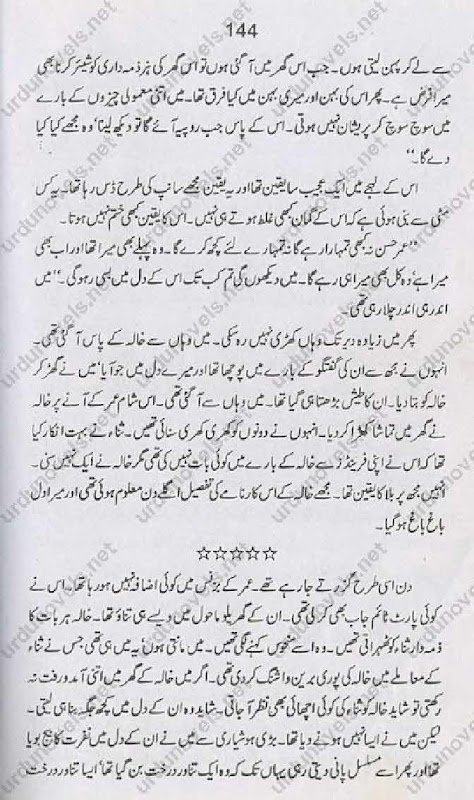 144
سے لے کر پہن لیتی ہوں۔ جب اس گھر میں آ گئی ہوں تو اس گھر کی ہر ذمہ داری کو شیئر کرنا بھی
میرا فرض ہے۔ پھر اس کی بہن اور میری بہن میں کیا فرق تھا۔ میں اتنی معمولی چیزوں کے بارے
میں سوچ سوچ کر پریشان نہیں ہوتی۔ اس کے پاس جب روپیہ آئے گا تو دیکھ لینا' وہ مجھے کیا کیا
دے گا۔''
اس کے لہجے میں ایک عجیب سا یقین تھا اور یہ یقین مجھے سانپ کی طرح ڈس رہا تھا۔ یہ کس
مٹی سے بنی ہوئی ہے کہ اس کے گمان کبھی غلط ہوتے ہی نہیں۔ اس کا یقین کبھی ختم نہیں ہوتا۔
''عمر حسن نہ کبھی تمہارا رہے گا نہ تمہارے لئے کچھ کرے گا۔ وہ پہلے بھی میرا تھا اور اب بھی
میرا ہے' وہ کل بھی میرا ہی رہے گا۔ میں دیکھوں گی تم کب تک اس کے دل میں بسی رہو گی۔'' میں
اندر ہی اندر چلا رہی تھی۔
پھر میں زیادہ دیر تک وہاں کھڑی نہیں رہ سکی۔ میں وہاں سے خالہ کے پاس آ گئی تھی۔
انہوں نے مجھ سے ان کی گفتگو کے بارے میں پوچھا تھا اور میرے دل میں جو آیا' میں نے گھڑ کر
خالہ کو بتا دیا۔ ان کا طیش بڑھتا ہی گیا تھا۔ میں وہاں سے آ گئی تھی۔ اس شام عمر کے آنے پر خالہ
نے گھر میں تماشا کھڑا کر دیا۔ انہوں نے دونوں کو کھری کھری سنائی تھیں۔ ثناء نے بہت انکار کیا
تھا کہ اس نے اپنی فرینڈز سے خالہ کے بارے میں کوئی بات نہیں کی تھی مگر خالہ نے ایک نہیں سنی۔
انہیں مجھ پر بلا کا یقین تھا۔ مجھے خالہ کے اس کارنامے کی تفصیل اگلے دن معلوم ہوئی تھی اور میرا دل
باغ باغ ہو گیا۔
☆☆☆☆☆
دن اسی طرح گزرتے جا رہے تھے۔ عمر کے بزنس میں کوئی اضافہ نہیں ہو رہا تھا۔ اس نے
کوئی پارٹ ٹائم جاب بھی کر لی تھی۔ ان کے گھریلو ماحول میں ویسے ہی تناؤ تھا۔ خالہ ہر بات کا
ذمہ دار ثناء کو ٹھہراتی تھیں۔ وہ اسے منحوس کہنے لگی تھیں۔ میں مانتی ہوں' یہ میں ہی تھی جس نے ثناء
کے معاملے میں خالہ کی پوری برین واشنگ کر دی تھی۔ اگر میں خالہ کے گھر میں اتنی آمدورفت نہ
رکھتی تو شاید خالہ کو ثناء کی کوئی اچھائی بھی نظر آ جاتی۔ شاید وہ ان کے دل میں کچھ جگہ بنا ہی لیتی۔
لیکن میں نے ایسا نہیں ہونے دیا تھا۔ بڑی ہوشیاری سے میں نے ان کے دل میں نفرت کا بیج بویا
تھا اور پھر اسے مسلسل پانی دیتی رہی یہاں تک کہ وہ ایک تناور درخت بن گیا تھا' ایسا تناور درخت
urdunovels.net